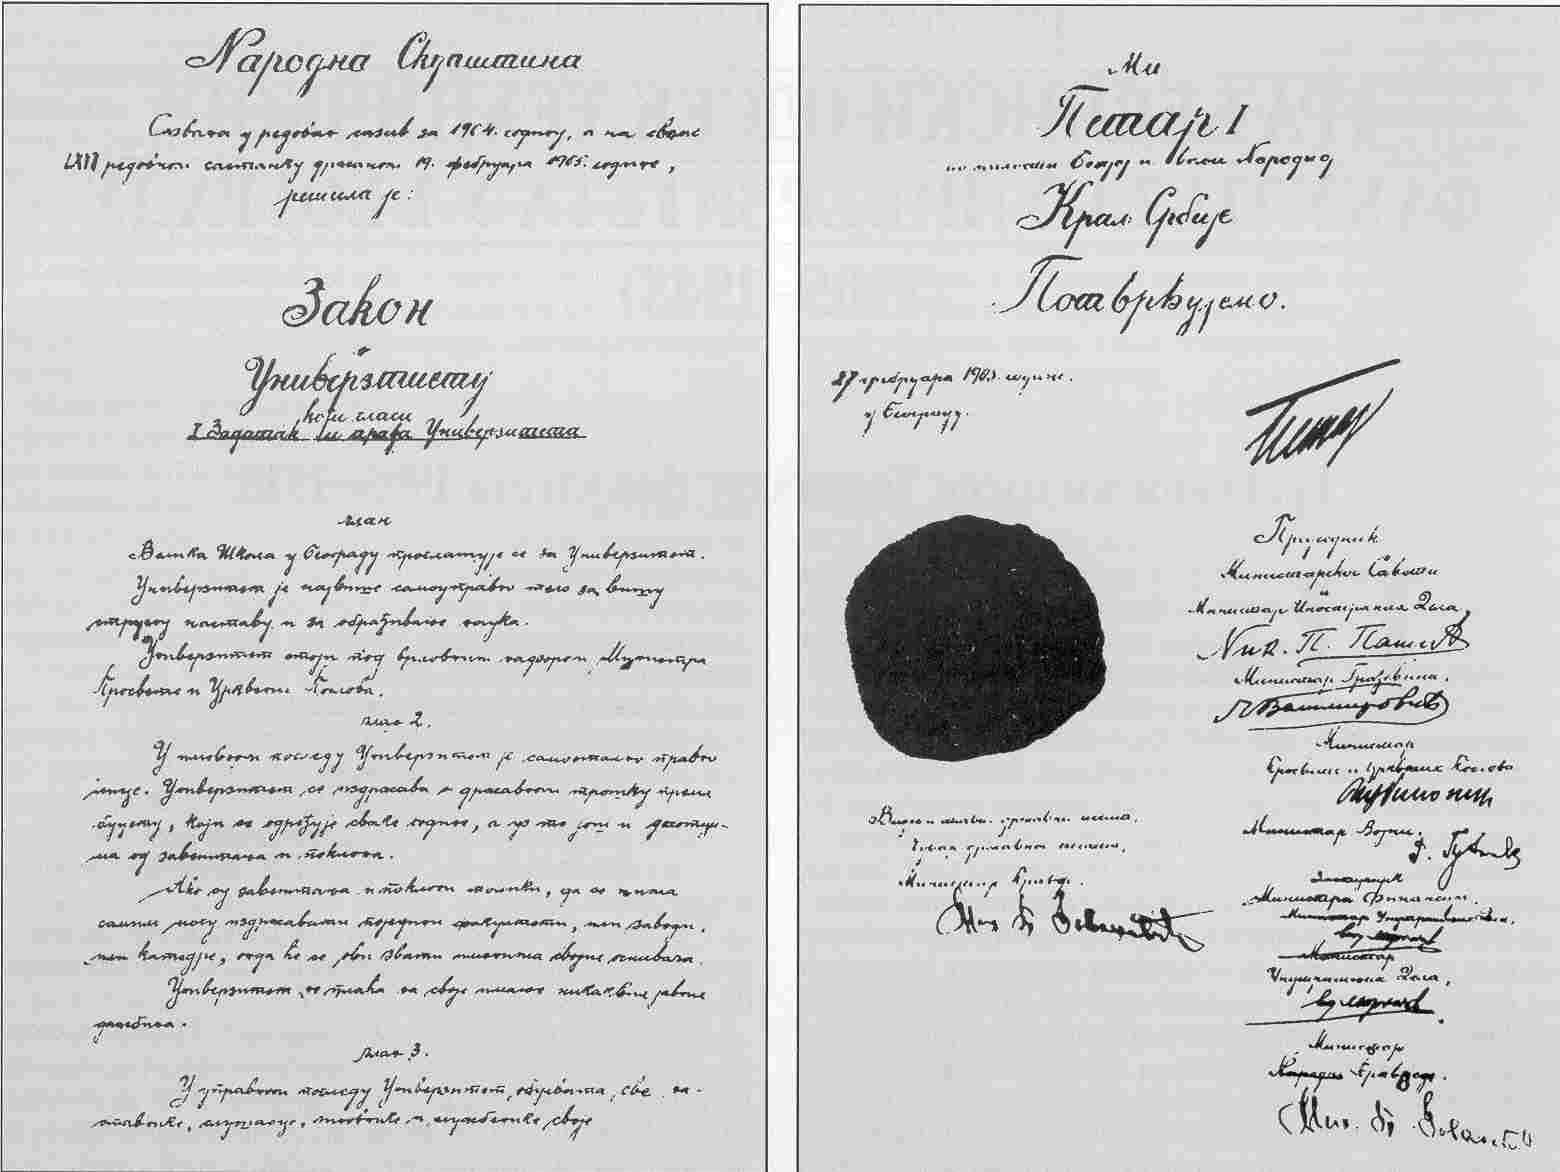 Народна Скупштина
Сазвана у редован сазив за 1904. годину, а на свом
LXII редовном састанку држаном 19. фебруара 1905. године,
решила је:
Закон
о
Универзитету
који гласи
I Задатак и права Универзитета
члан
Велика Школа у Београду проглашује се за Универзитет.
Универзитет је највише самоуправно тело за вишу
стручну наставу и за обрађивање наука.
Универзитет стоји под врховним надзором Министра
Просвете и Црквених Послова.
члан 2.
У имовном погледу Универзитет је самостално правно
лице. Универзитет се издржава о државном трошку према
буџету, који се одређује сваке године, а уз то још и
од завештања и поклона.
Ако су завештања и поклони толики, да се њима
самим могу издржавати поједини факултети, или заводи,
или катедре, онда ће се они звати именима својих оснивача.
Универзитет не плаћа за своје имање никакве јавне
дажбине.
члан 3.
У управном погледу Универзитет обухвата, све
и службенике своје
Ми
Петар I
по милости Божјој и вољи Народној
Краљ Србије
Потврђујемо.
27 фебруара 1905. године.
у Београду.
Петар
Председник
Министарског Савета
и
Министар Иностраних Дела,
Ник. П. Пашић
Министар Грађевина.
Министар
Просвете и Црквених Послова
Министар Војни.
Заступник
Министра Финансија.
Министар Унутрашњих Дела.
Министар
Унутрашњих Дела,
Министар
Народне Привреде.
Видео и ставио државни печат.
Чувар државног печата,
Министар Правде.